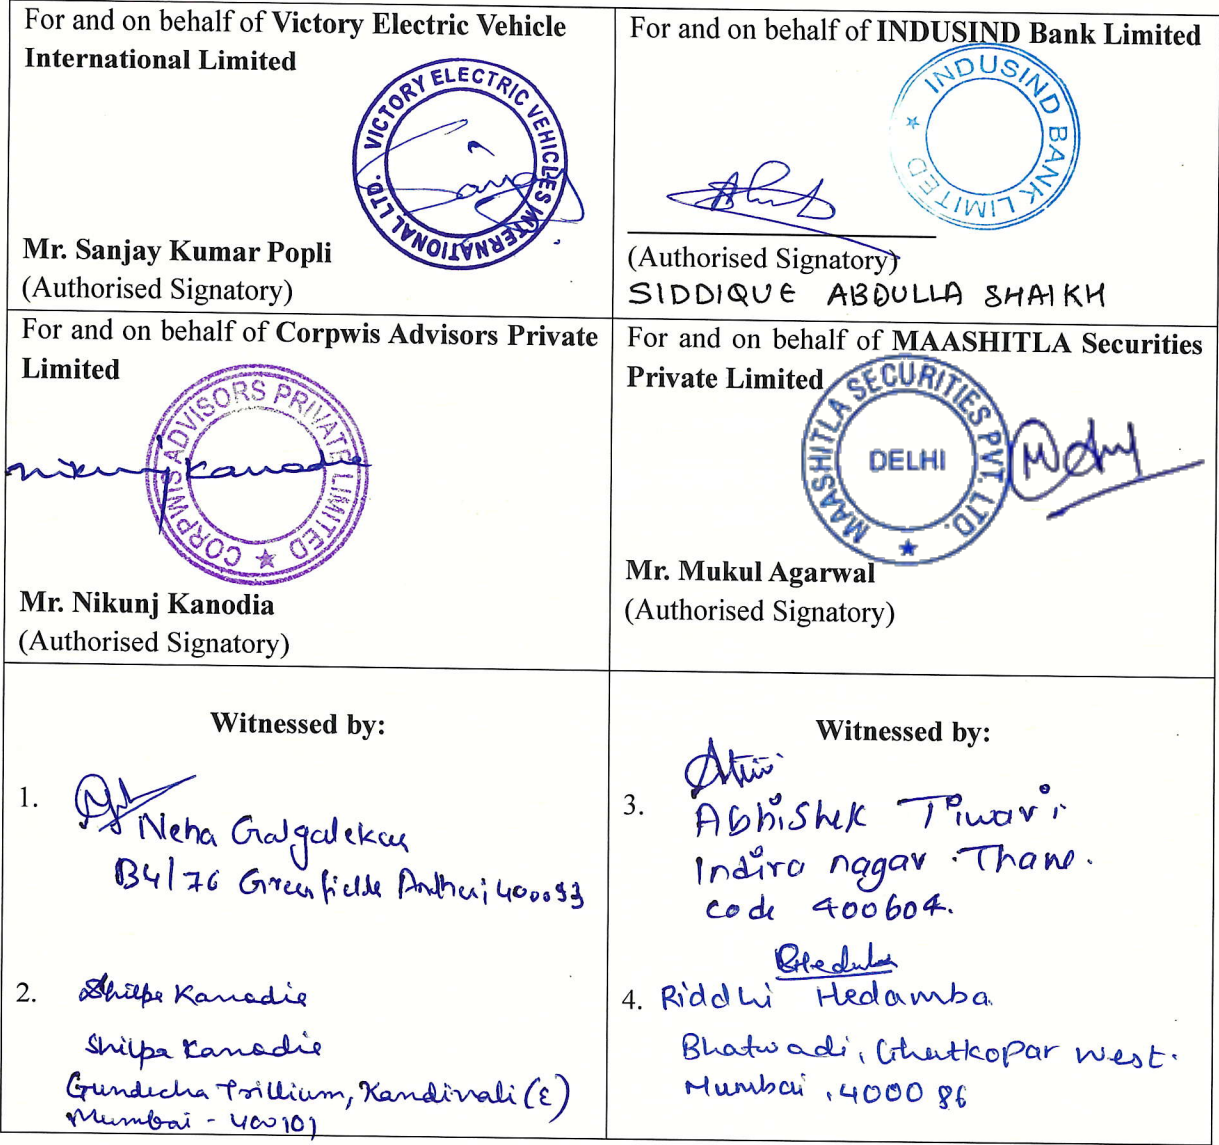 For and on behalf of Victory Electric Vehicle
International Limited
VICTORY ELECTRIC VEHICLES INTERNATIONAL LTD.
Mr. Sanjay Kumar Popli
(Authorised Signatory)
For and on behalf of INDUSIND Bank Limited
INDUSIND BANK LIMITED
(Authorised Signatory)
SIDDIQUE ABDULLA SHAIKH
For and on behalf of Corpwis Advisors Private
Limited
CORPWIS ADVISORS PRIVATE LIMITED
Nikunj Kanodia
Mr. Nikunj Kanodia
(Authorised Signatory)
For and on behalf of MAASHITLA Securities
Private Limited
MAASHITLA SECURITIES PVT. LTD.
DELHI
Mr. Mukul Agarwal
(Authorised Signatory)
Witnessed by:
1.
Neha Galgalekar
B4/76 Greenfields Andheri 400093
2. Shilpa Kanodia
Shilpa Kanodia
Gundecha Trillium, Kandivali (E)
Mumbai - 400101
Witnessed by:
3.
Abhishek Tiwari
Indira nagar Thane.
code 400604.
4. Riddhi Hedamba
Bhatwadi, Ghatkopar west.
Mumbai, 400086